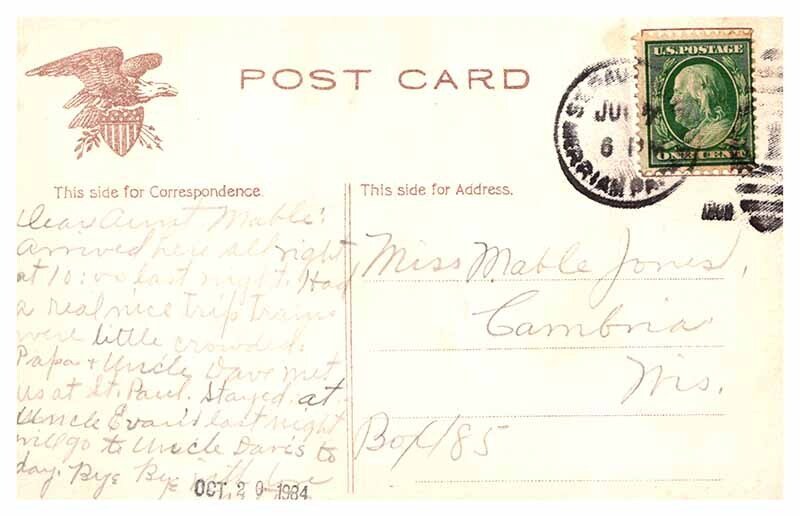 POST CARD
U.S. POSTAGE
ONE CENT
ST. PAUL
JUL
6 P
MERRIAM PARK
This side for Correspondence.
Dear Aunt Mable:
Arrived here all right
at 10:00 last night. Had
a real nice trip trains
were little crowded.
Papa & Uncle Dave met
us at St. Paul. Stayed at
Uncle Evan's last night
will go to Uncle Davis to
day. Bye Bye with love
OCT. 29 1984
This side for Address.
Miss Mable Jones,
Cambria
Wis.
Box 185